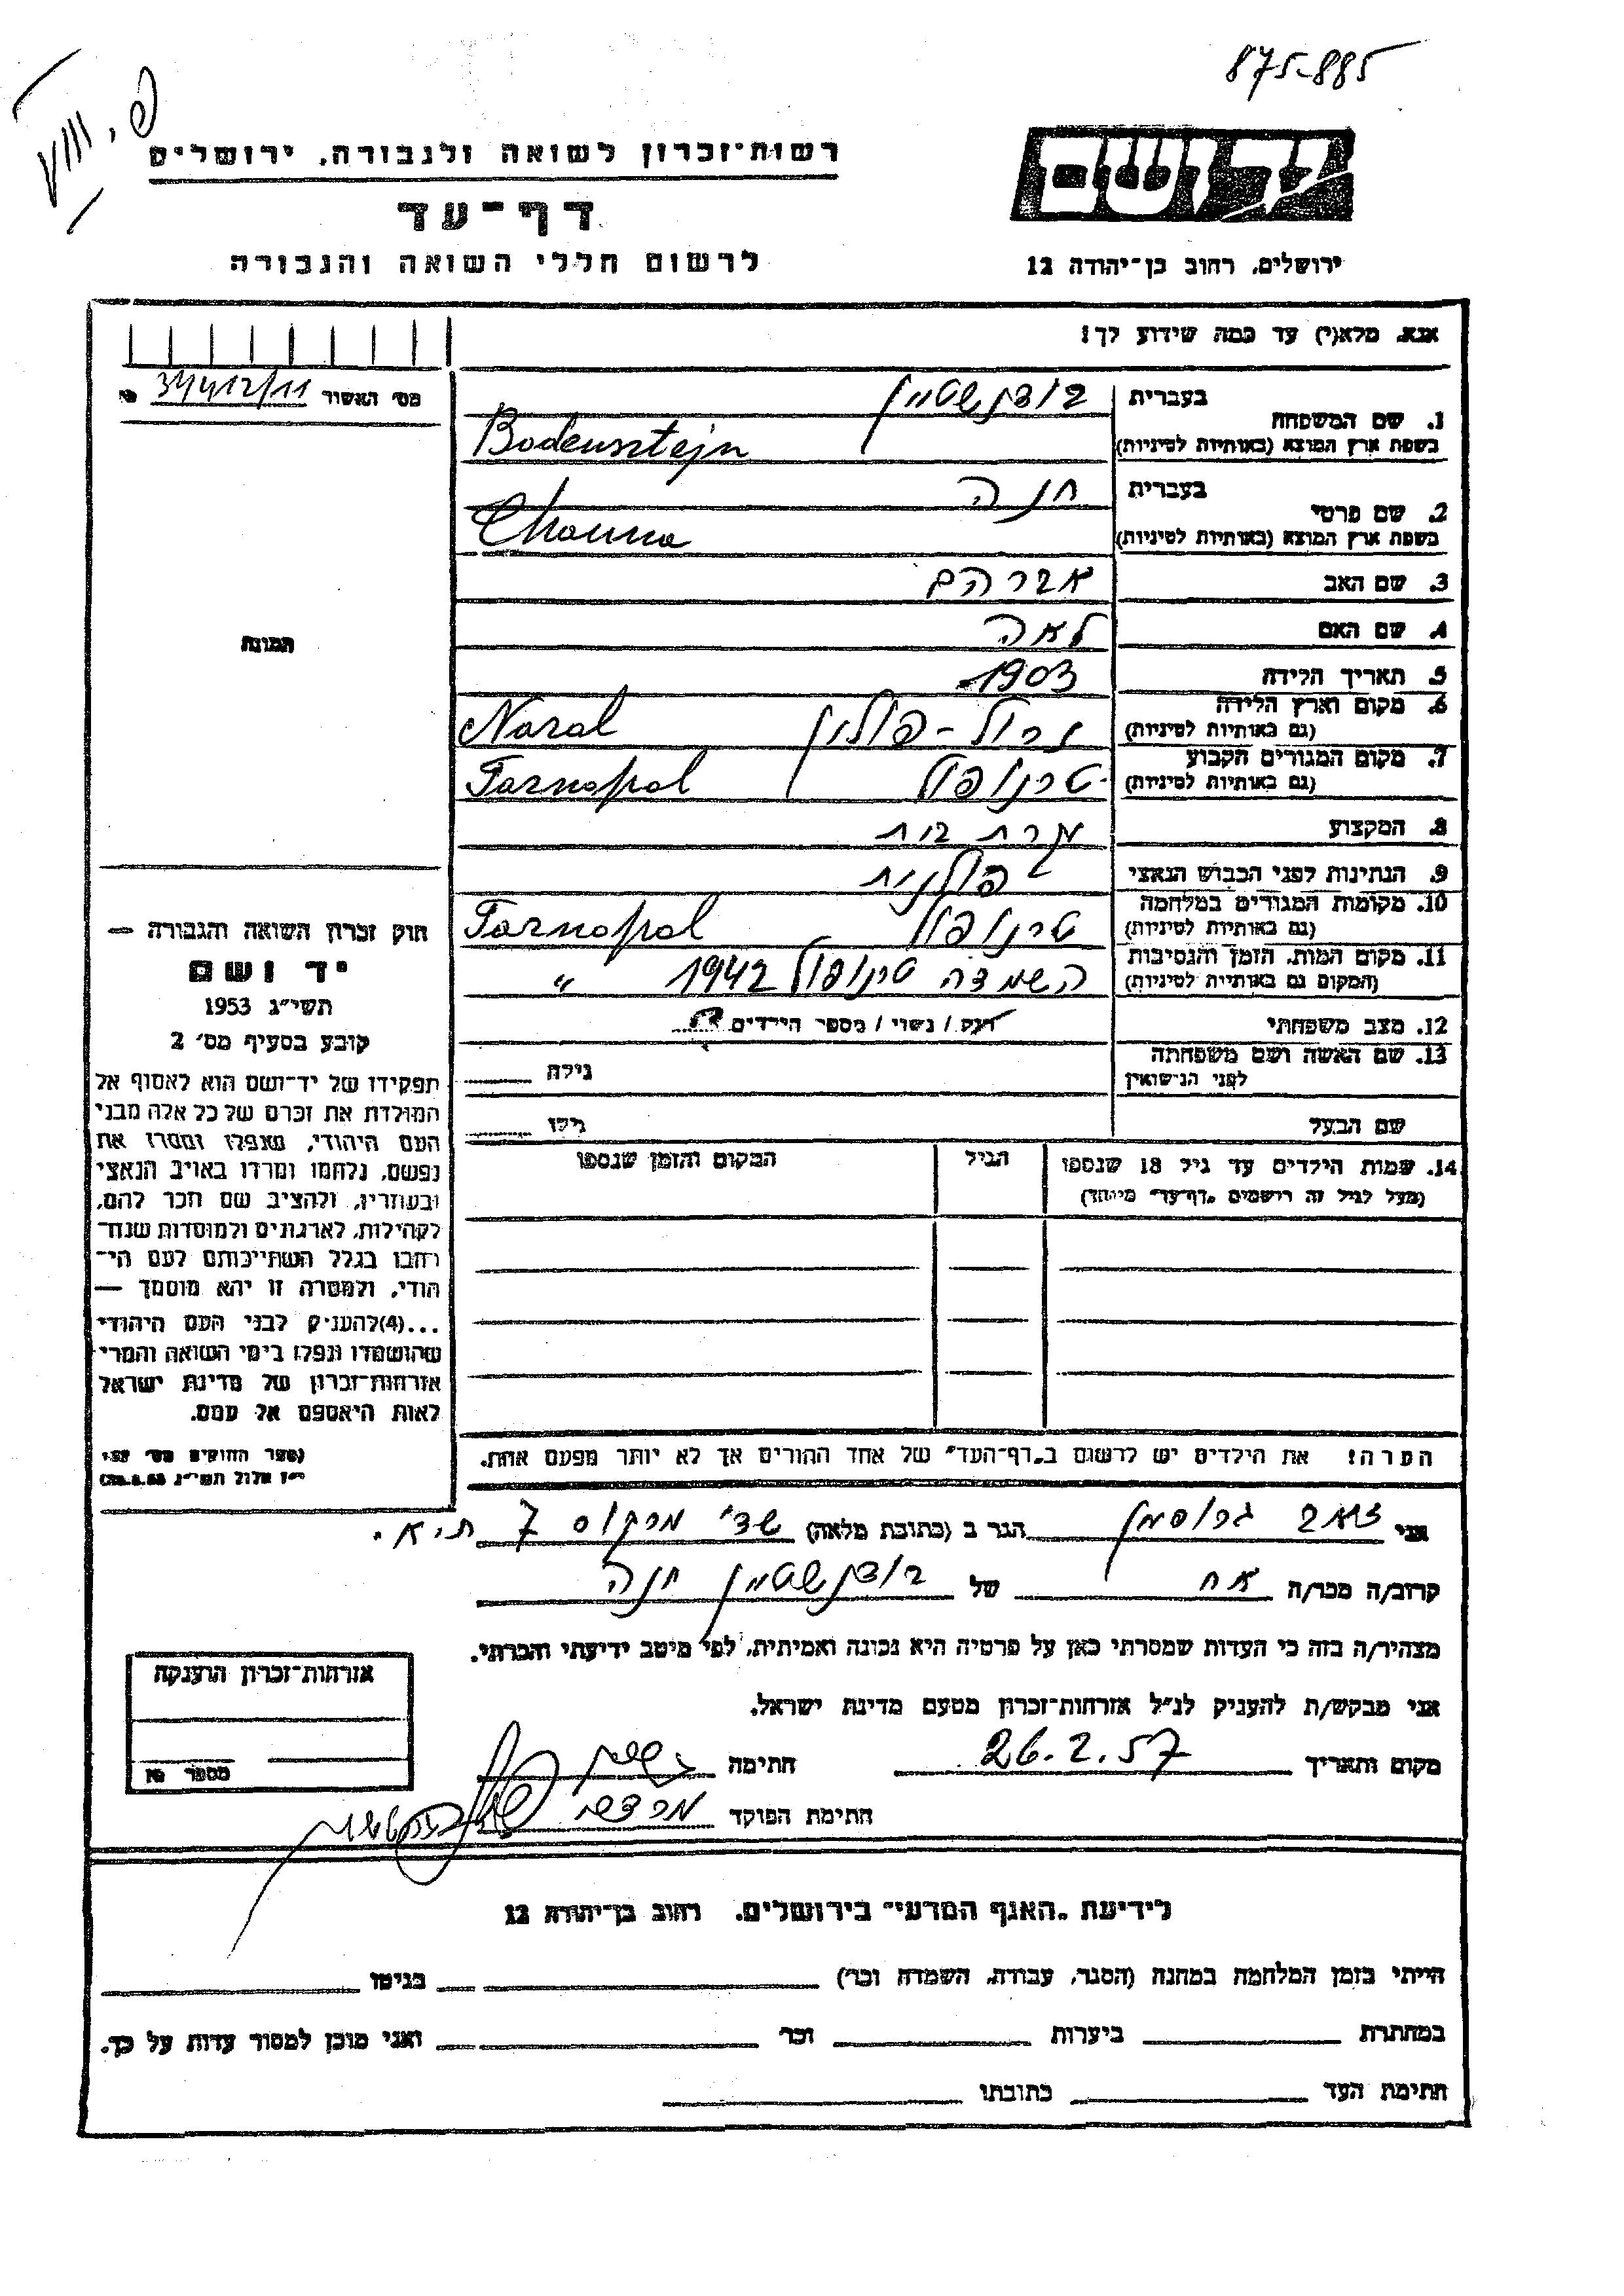 875-885
VIII. פ
יד ושם
ירושלים, רחוב בן-יהודה 12
רשות-זכרון לשואה ולגבורה, ירושלים
דף-עד
לרשום חללי השואה והגבורה
אנא, מלא(י) עד כמה שידוע לך!
מס' האשור 34412/11 №
1. שם המשפחה בעברית בודנשטיין
בשפת ארץ המוצא (באותיות לטיניות) Bodensztejn
2. שם פרטי בעברית חנה
בשפת ארץ המוצא (באותיות לטיניות) Channa
3. שם האב אברהם
4. שם האם לאה
5. תאריך הלידה 1903
6. מקום וארץ הלידה נרול - פולין Naral
(גם באותיות לטיניות)
7. מקום המגורים הקבוע טרנופול Tarnopol
(גם באותיות לטיניות)
8. המקצוע עקרת בית
9. הנתינות לפני הכבוש הנאצי פולנית
10. מקומות המגורים במלחמה טרנופול Tarnopol
(גם באותיות לטיניות)
11. מקום המות, הזמן והנסיבות השמדה טרנופול 1942 "
(המקום גם באותיות לטיניות)
12. מצב משפחתי רוק / נשוי / מספר הילדים
13. שם האשה ושם משפחתה גילה
לפני הנישואין
שם הבעל גילו
14. שמות הילדים עד גיל 18 שנספו הגיל המקום והזמן שנספו
(מעל לגיל זה רושמים "דף-עד" מיוחד)
הערה! את הילדים יש לרשום ב"דף-העד" של אחד ההורים אך לא יותר מפעם אחת.
תמונה
חוק זכרון השואה והגבורה —
יד ושם
תשי"ג 1953
קובע בסעיף מס' 2
תפקידו של יד-ושם הוא לאסוף אל
המולדת את זכרם של כל אלה מבני
העם היהודי, שנפלו ומסרו את
נפשם, נלחמו ומרדו באויב הנאצי
ובעוזריו, ולהציב שם וזכר להם,
לקהילות, לארגונים ולמוסדות שנח-
רבו בגלל השתייכותם לעם הי-
הודי, ולמטרה זו יהא מוסמך —
...(4) להעניק לבני העם היהודי
שהושמדו ונפלו בימי השואה והמרי
אזרחות-זכרון של מדינת ישראל
לאות היאספם אל עמם.
(ספר החוקים מס' 132
י"ז אלול תשי"ג 28.8.53)
אני זאב גרוסמן הגר ב (כתובת מלאה) שד' מרקוס 7 ת.א.
קרוב/ה מכר/ה אח של בודנשטיין חנה
מצהיר/ה בזה כי העדות שמסרתי כאן על פרטיה היא נכונה ואמיתית, לפי מיטב ידיעתי והכרתי.
אני מבקש/ת להעניק לנ"ל אזרחות-זכרון מטעם מדינת ישראל.
מקום ותאריך 26.2.57 חתימה
חתימת הפוקד
אזרחות-זכרון הוענקה
מספר №
לידיעת "האגף המדעי" בירושלים, רחוב בן-יהודה 12
הייתי בזמן המלחמה במחנה (הסגר, עבודה, השמדה וכו') בגיטו
במחתרת ביערות וכו' ואני מוכן למסור עדות על כך.
חתימת העד כתובתו